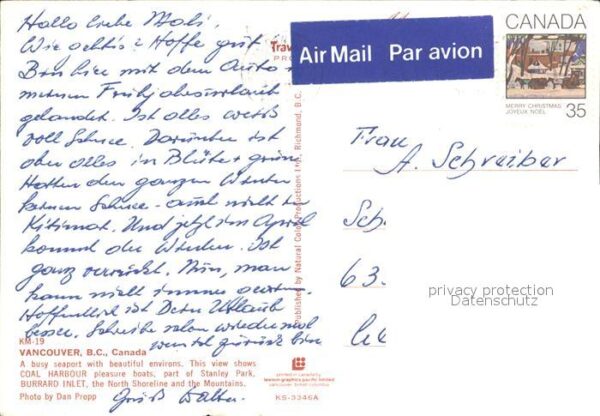 Hallo liebe Mali,
Wie geht's? Hoffe gut!
Bin hier mit dem Auto
meinen Frühjahrsurlaub
gelandet. Ist alles weiß
voll Schnee. Darunter ist
aber alles in Blüte + grün.
Hatten den ganzen Winter
keinen Schnee - auch nicht in
Kitimat. Und jetzt im April
kommt der Winter. Ist
ganz verrückt. Nun, man
kann nicht immer
Hoffentlich ist Dein Urlaub
besser. Schreibe schon wieder mal
wenn ich zurück bin
Gruß Walter
KM-19
VANCOUVER, B.C., Canada
A busy seaport with beautiful environs. This view shows
COAL HARBOUR pleasure boats, part of Stanley Park,
BURRARD INLET, the North Shoreline and the Mountains.
Photo by Dan Propp
Published by Natural Color Productions Ltd., Richmond, B.C.
Trav
PRO
Air Mail Par avion
CANADA
MERRY CHRISTMAS
JOYEUX NOËL
35
Frau
A. Schreiber
Sch
63
privacy protection
Datenschutz
printed in canada by
lawson graphics pacific limited
vancouver, british columbia
KS-3346A